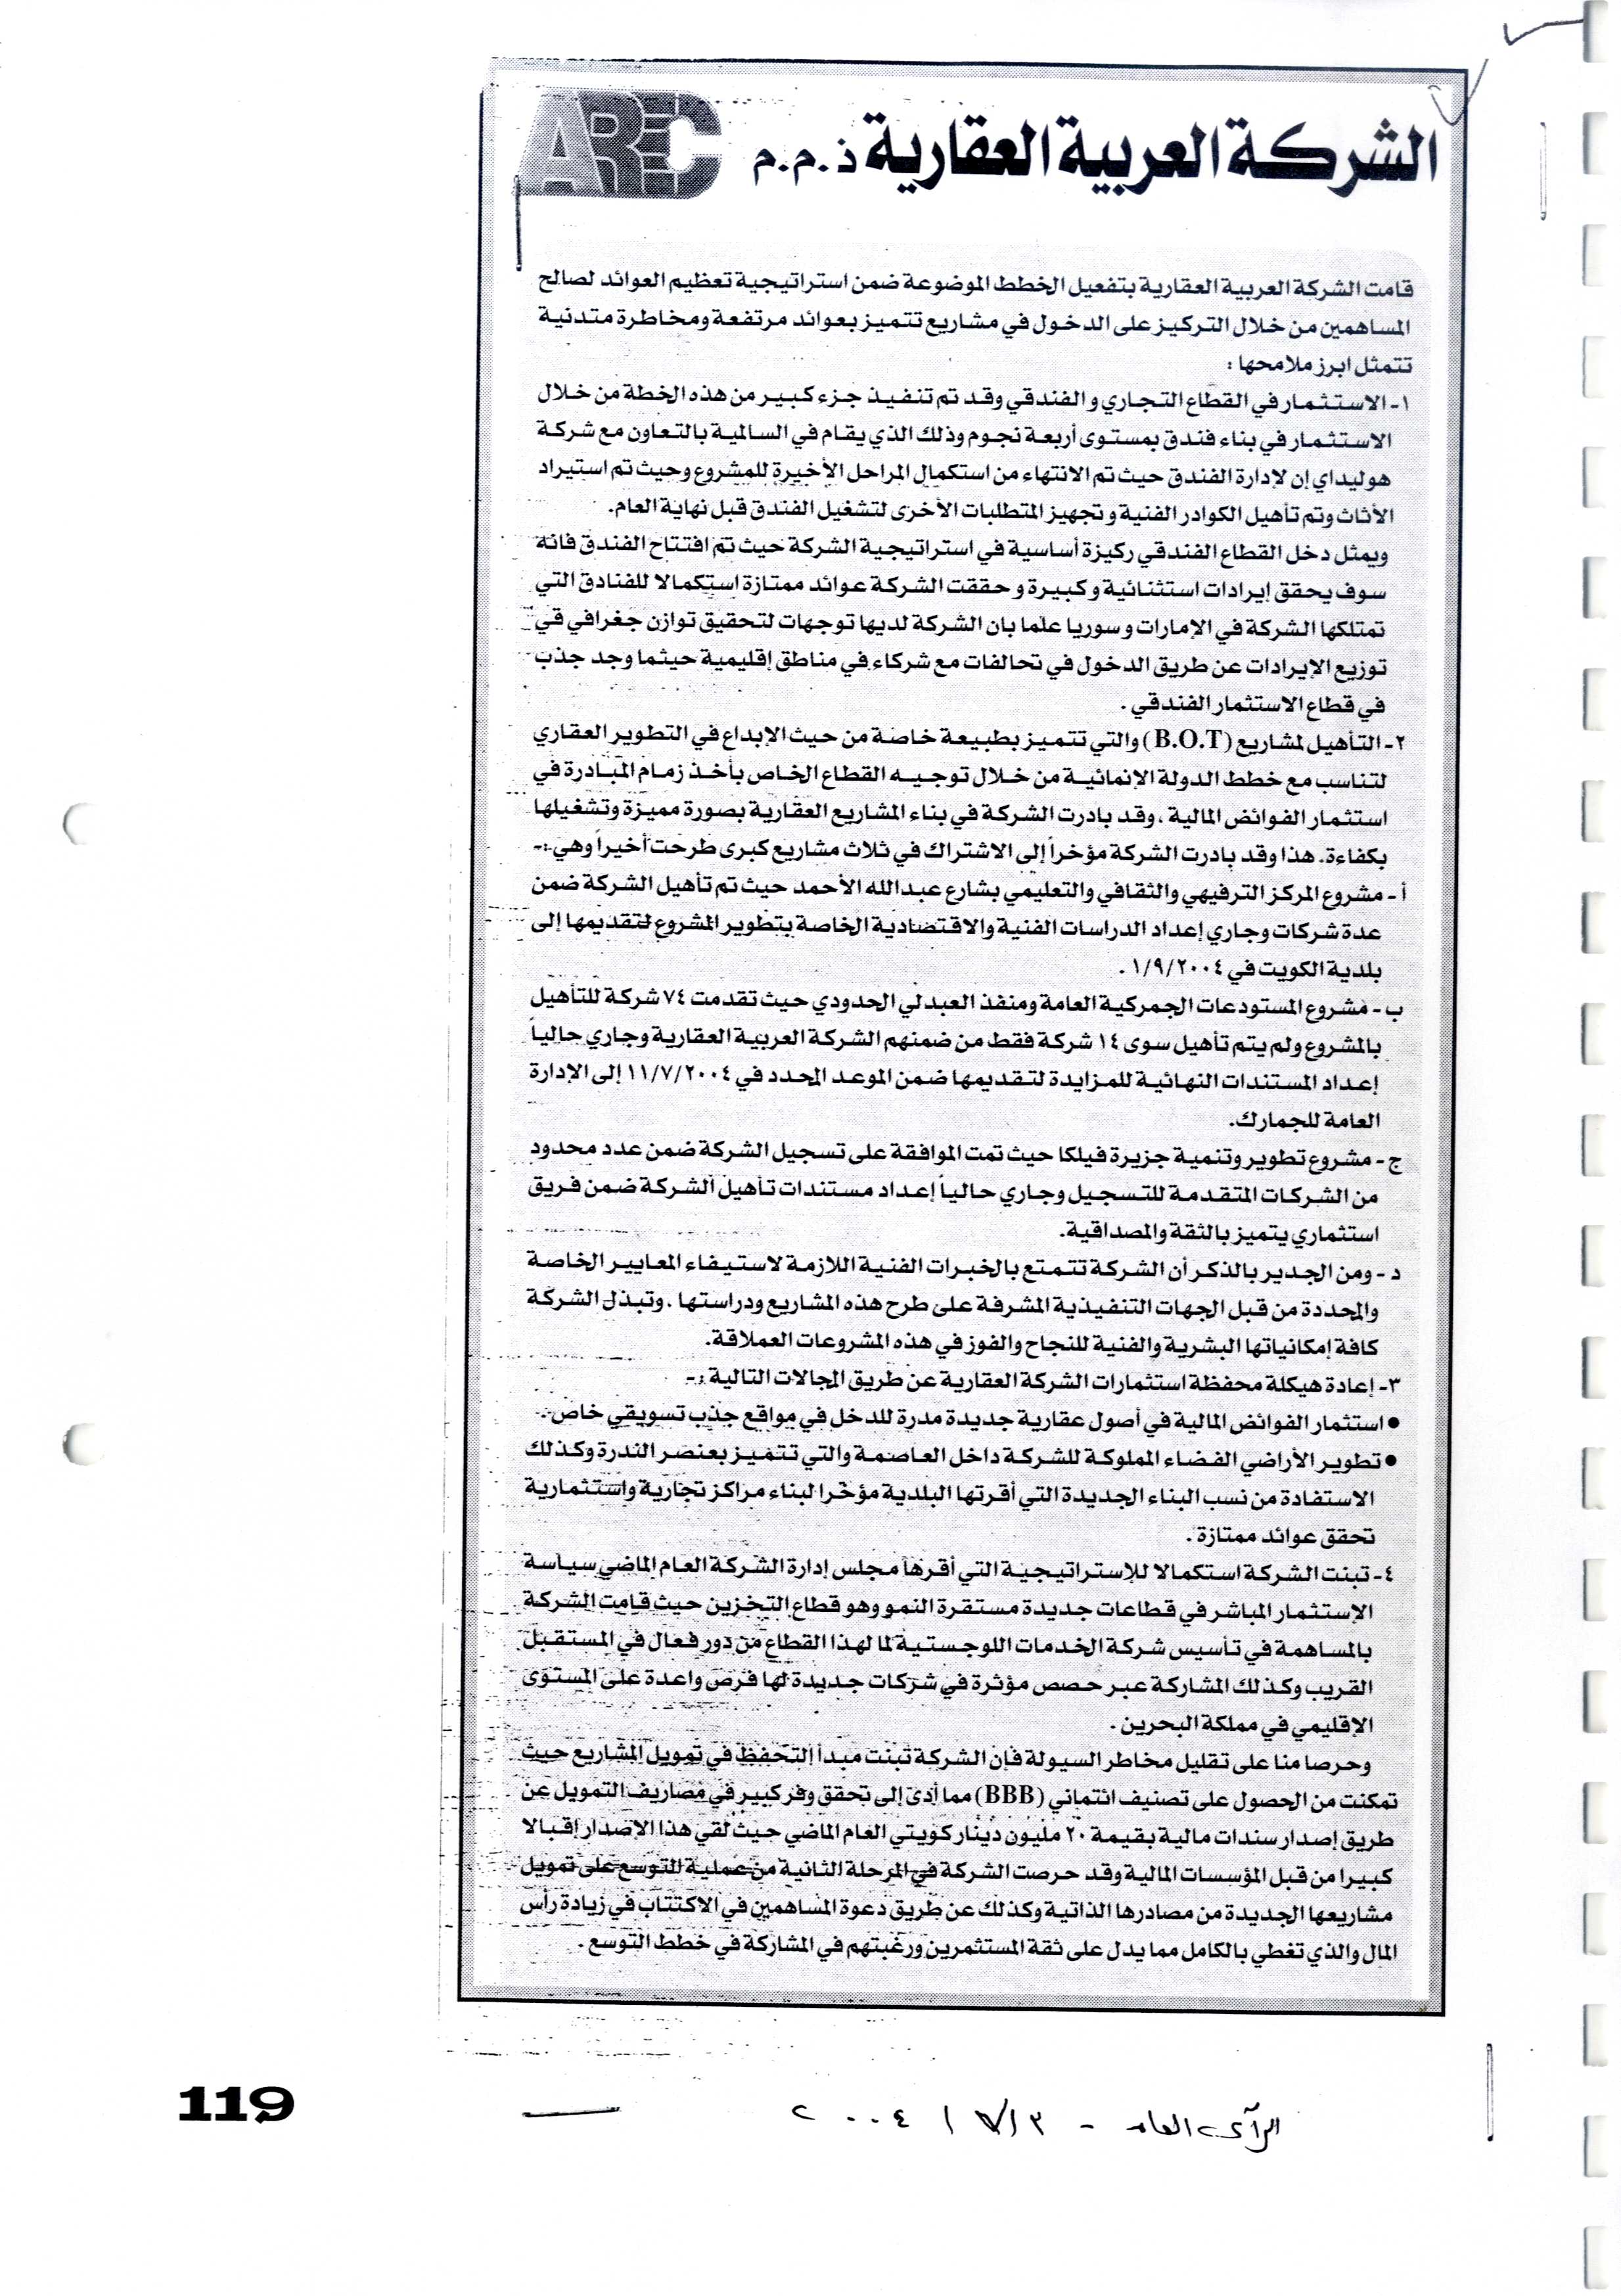 الشركة العربية العقارية ذ.م.م
AREC
قامت الشركة العربية العقارية بتفعيل الخطط الموضوعة ضمن استراتيجية تعظيم العوائد لصالح
المساهمين من خلال التركيز على الدخول في مشاريع تتميز بعوائد مرتفعة ومخاطرة متدنية
تتمثل ابرز ملامحها :
١- الاستثمار في القطاع التجاري والفندقي وقد تم تنفيذ جزء كبير من هذه الخطة من خلال
الاستثمار في بناء فندق بمستوى أربعة نجوم وذلك الذي يقام في السالمية بالتعاون مع شركة
هوليداي إن لإدارة الفندق حيث تم الانتهاء من استكمال المراحل الأخيرة للمشروع وحيث تم استيراد
الأثاث وتم تأهيل الكوادر الفنية و تجهيز المتطلبات الأخرى لتشغيل الفندق قبل نهاية العام.
ويمثل دخل القطاع الفندقي ركيزة أساسية في استراتيجية الشركة حيث تم افتتاح الفندق فانه
سوف يحقق إيرادات استثنائية و كبيرة و حققت الشركة عوائد ممتازة استكمالا للفنادق التي
تمتلكها الشركة في الإمارات و سوريا علما بان الشركة لديها توجهات لتحقيق توازن جغرافي في
توزيع الإيرادات عن طريق الدخول في تحالفات مع شركاء في مناطق إقليمية حيثما وجد جذب
في قطاع الاستثمار الفندقي .
٢- التأهيل لمشاريع (B.O.T) والتي تتميز بطبيعة خاصة من حيث الإبداع في التطوير العقاري
لتناسب مع خطط الدولة الإنمائية من خلال توجيه القطاع الخاص بأخذ زمام المبادرة في
استثمار الفوائض المالية ، وقد بادرت الشركة في بناء المشاريع العقارية بصورة مميزة وتشغيلها
بكفاءة. هذا وقد بادرت الشركة مؤخراً إلى الاشتراك في ثلاث مشاريع كبرى طرحت أخيراً وهي :-
أ- مشروع المركز الترفيهي والثقافي والتعليمي بشارع عبدالله الأحمد حيث تم تأهيل الشركة ضمن
عدة شركات وجاري إعداد الدراسات الفنية والاقتصادية الخاصة بتطوير المشروع لتقديمها إلى
بلدية الكويت في ١/٩/٢٠٠٤ .
ب- مشروع المستودعات الجمركية العامة ومنفذ العبدلي الحدودي حيث تقدمت ٧٤ شركة للتأهيل
بالمشروع ولم يتم تأهيل سوى ١٤ شركة فقط من ضمنهم الشركة العربية العقارية وجاري حالياً
إعداد المستندات النهائية للمزايدة لتقديمها ضمن الموعد المحدد في ١١/٧/٢٠٠٤ إلى الإدارة
العامة للجمارك.
ج- مشروع تطوير وتنمية جزيرة فيلكا حيث تمت الموافقة على تسجيل الشركة ضمن عدد محدود
من الشركات المتقدمة للتسجيل وجاري حالياً إعداد مستندات تأهيل الشركة ضمن فريق
استثماري يتميز بالثقة والمصداقية.
د- ومن الجدير بالذكر أن الشركة تتمتع بالخبرات الفنية اللازمة لاستيفاء المعايير الخاصة
والمحددة من قبل الجهات التنفيذية المشرفة على طرح هذه المشاريع ودراستها ، وتبذل الشركة
كافة إمكانياتها البشرية والفنية للنجاح والفوز في هذه المشروعات العملاقة.
٣- إعادة هيكلة محفظة استثمارات الشركة العقارية عن طريق المجالات التالية :-
● استثمار الفوائض المالية في أصول عقارية جديدة مدرة للدخل في مواقع جذب تسويقي خاص.
● تطوير الأراضي الفضاء المملوكة للشركة داخل العاصمة والتي تتميز بعنصر الندرة وكذلك
الاستفادة من نسب البناء الجديدة التي أقرتها البلدية مؤخرا لبناء مراكز تجارية واستثمارية
تحقق عوائد ممتازة .
٤- تبنت الشركة استكمالا للإستراتيجية التي أقرها مجلس إدارة الشركة العام الماضي سياسة
الإستثمار المباشر في قطاعات جديدة مستقرة النمو وهو قطاع التخزين حيث قامت الشركة
بالمساهمة في تأسيس شركة الخدمات اللوجستية لما لهذا القطاع من دور فعال في المستقبل
القريب وكذلك المشاركة عبر حصص مؤثرة في شركات جديدة لها فرص واعدة على المستوى
الإقليمي في مملكة البحرين .
وحرصا منا على تقليل مخاطر السيولة فإن الشركة تبنت مبدأ التحفظ في تمويل المشاريع حيث
تمكنت من الحصول على تصنيف ائتماني (BBB) مما أدى إلى تحقق وفر كبير في مصاريف التمويل عن
طريق إصدار سندات مالية بقيمة ٢٠ مليون دينار كويتي العام الماضي حيث لقي هذا الإصدار إقبالا
كبيرا من قبل المؤسسات المالية وقد حرصت الشركة في المرحلة الثانية من عملية للتوسع على تمويل
مشاريعها الجديدة من مصادرها الذاتية وكذلك عن طريق دعوة المساهمين في الاكتتاب في زيادة رأس
المال والذي تغطي بالكامل مما يدل على ثقة المستثمرين ورغبتهم في المشاركة في خطط التوسع .
الرأي العام - ٣/٧/٢٠٠٤
119